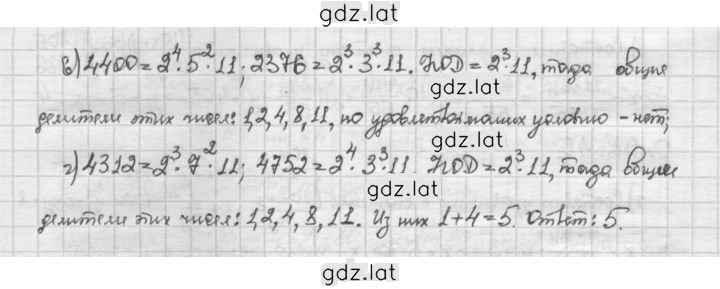 gdz.lat
в) 4400 = 2⁴·5²·11; 2376 = 2³·3³·11. НОД = 2³·11, тогда общие
gdz.lat
делители этих чисел: 1, 2, 4, 8, 11, но удовлетворяющих условию – нет;
г) 4312 = 2³·7²·11; 4752 = 2⁴·3³·11. НОД = 2³·11, тогда общие
gdz.lat
делители этих чисел: 1, 2, 4, 8, 11. Из них 1+4=5. Ответ: 5.
gdz.lat